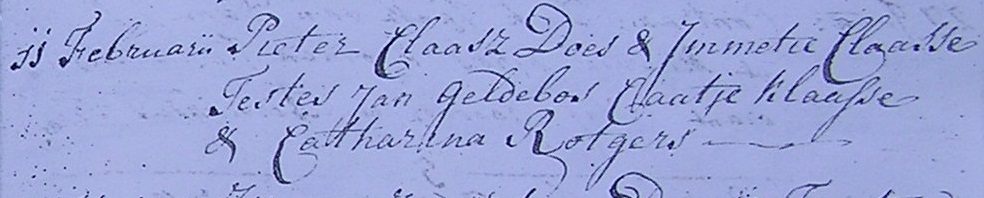 11 Februarii Pieter Claasz Does & Jmmetie Claasse
Testes Jan Geldebos Claatje Klaasse
& Catharina Rotgers